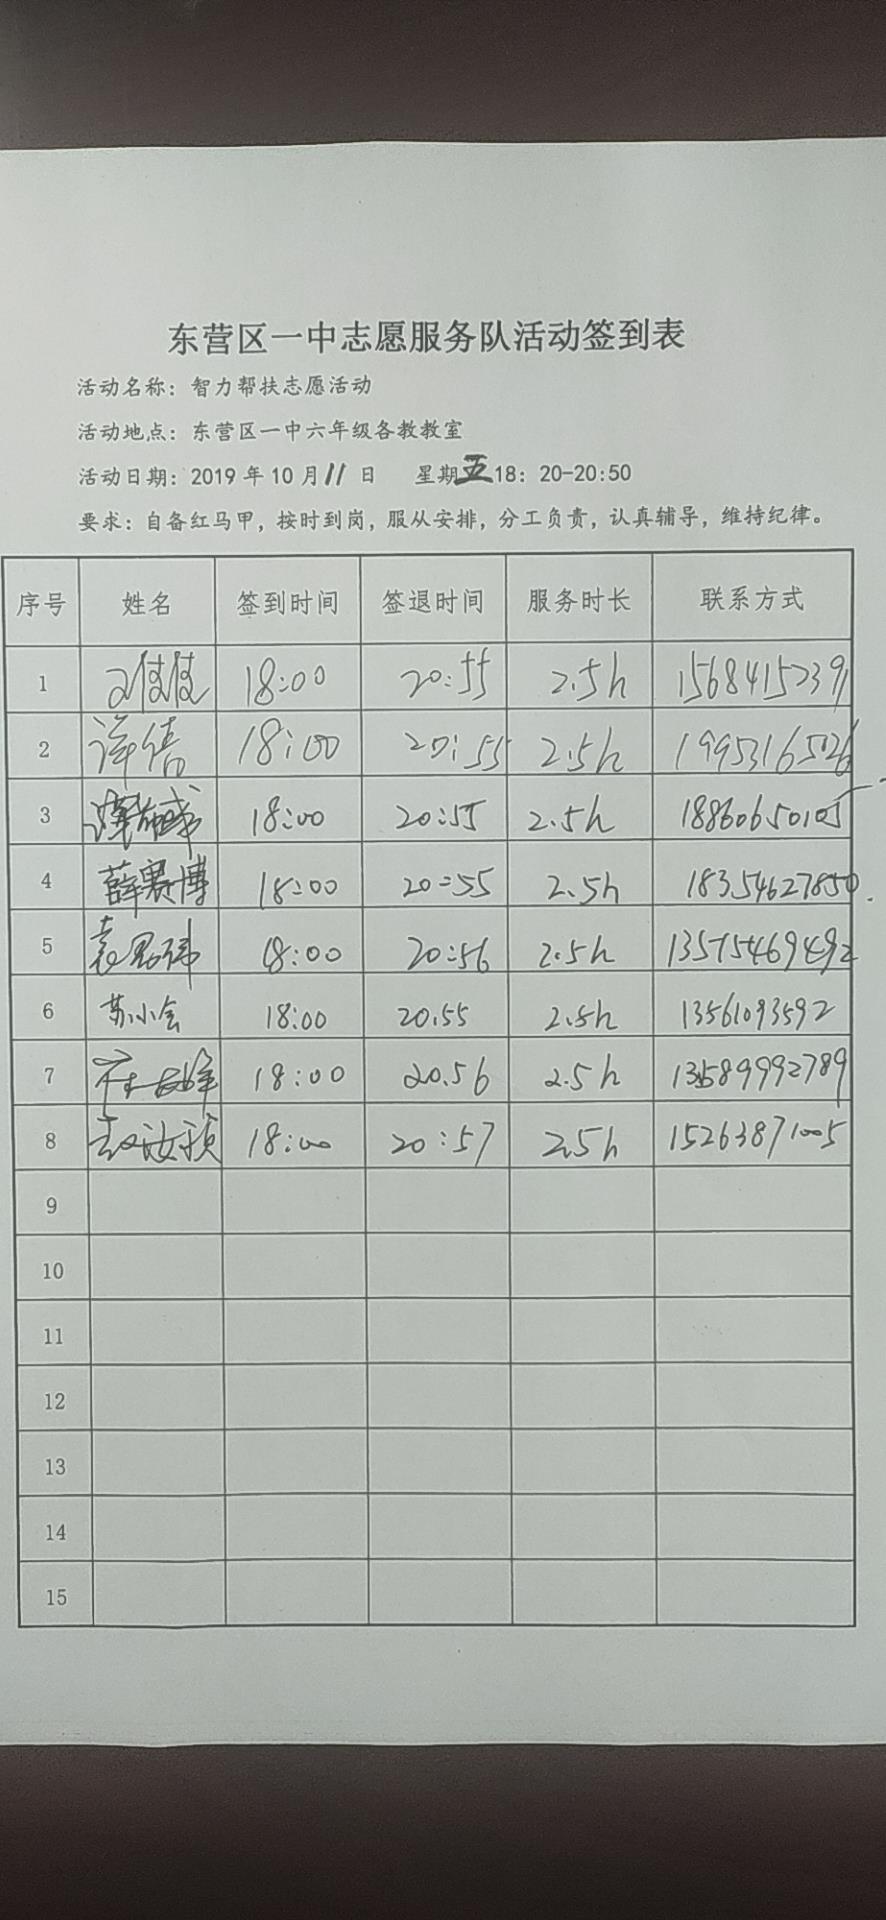 东营区一中志愿服务队活动签到表
活动名称：智力帮扶志愿活动
活动地点：东营区一中六年级各教教室
活动日期：2019 年 10 月 11 日 星期五 18：20-20:50
要求：自备红马甲，按时到岗，服从安排，分工负责，认真辅导，维持纪律。
序号 姓名 签到时间 签退时间 服务时长 联系方式
1 18:00 20:55 2.5h 15684152391
2 18:00 20:55 2.5h 19953165026
3 18:00 20:55 2.5h 18860650105
4 薛赛博 18:00 20:55 2.5h 18354627850
5 18:00 20:56 2.5h
6 苏小会 18:00 20.55 2.5h 13561093592
7 18:00 20.56 2.5h 13589992789
8 18:00 20:57 2.5h 15263871005
9
10
11
12
13
14
15